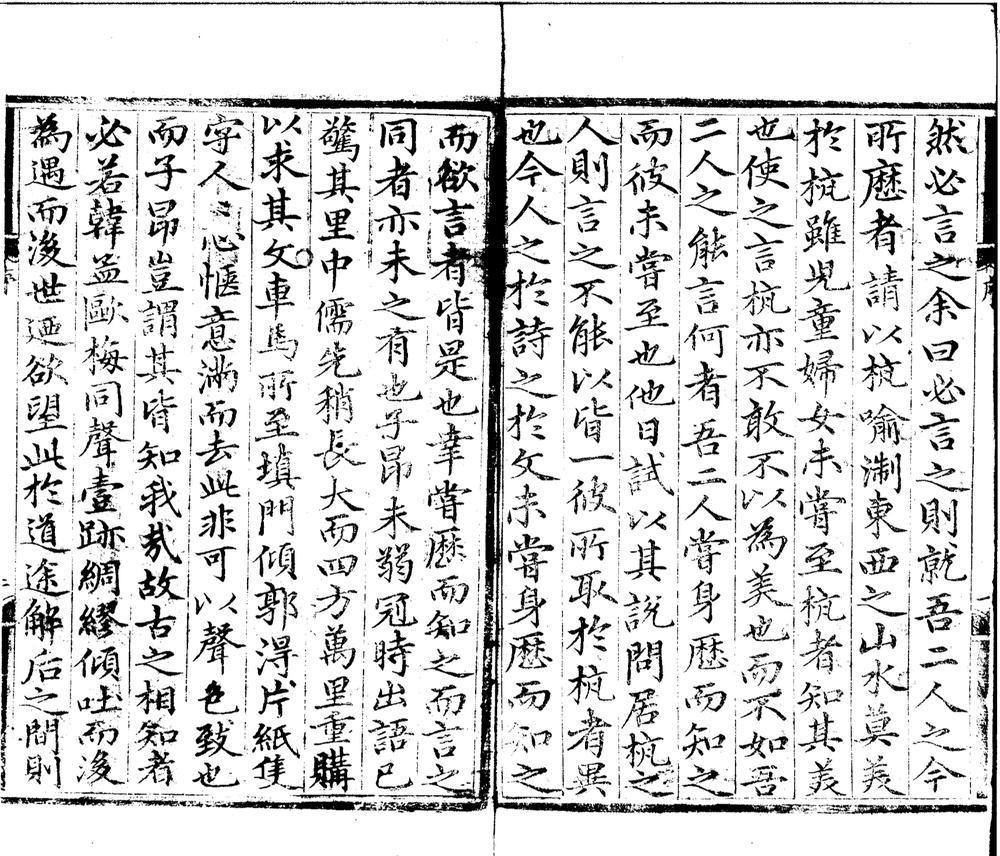 然必言之余曰必言之則就吾二人之今
所歷者請以杭喻淛東西之山水莫羙
於杭雖兒童婦女未嘗至杭者知其羙
也使之言杭亦不敢不以為美也而不如吾
二人之能言何者吾二人嘗身歷而知之
而彼未嘗至也他日試以其說問居杭之
人則言之不能以皆一彼所取於杭者異
也今人之於詩之於文未嘗身歷而知之
而欲言者皆是也幸嘗歷而知之而言之
同者亦未之有也子昂未弱冠時出語已
驚其里中儒先稍長大而四方萬里重購
以求其文車馬所至填門傾郭得片紙隻
字人人心愜意滿而去此非可以聲色致也
而子昂豈謂其皆知我㢤故古之相知者
必若韓孟歐梅同聲壹跡綢繆傾吐而後
為遇而後世迺欲望此於道途解后之間則